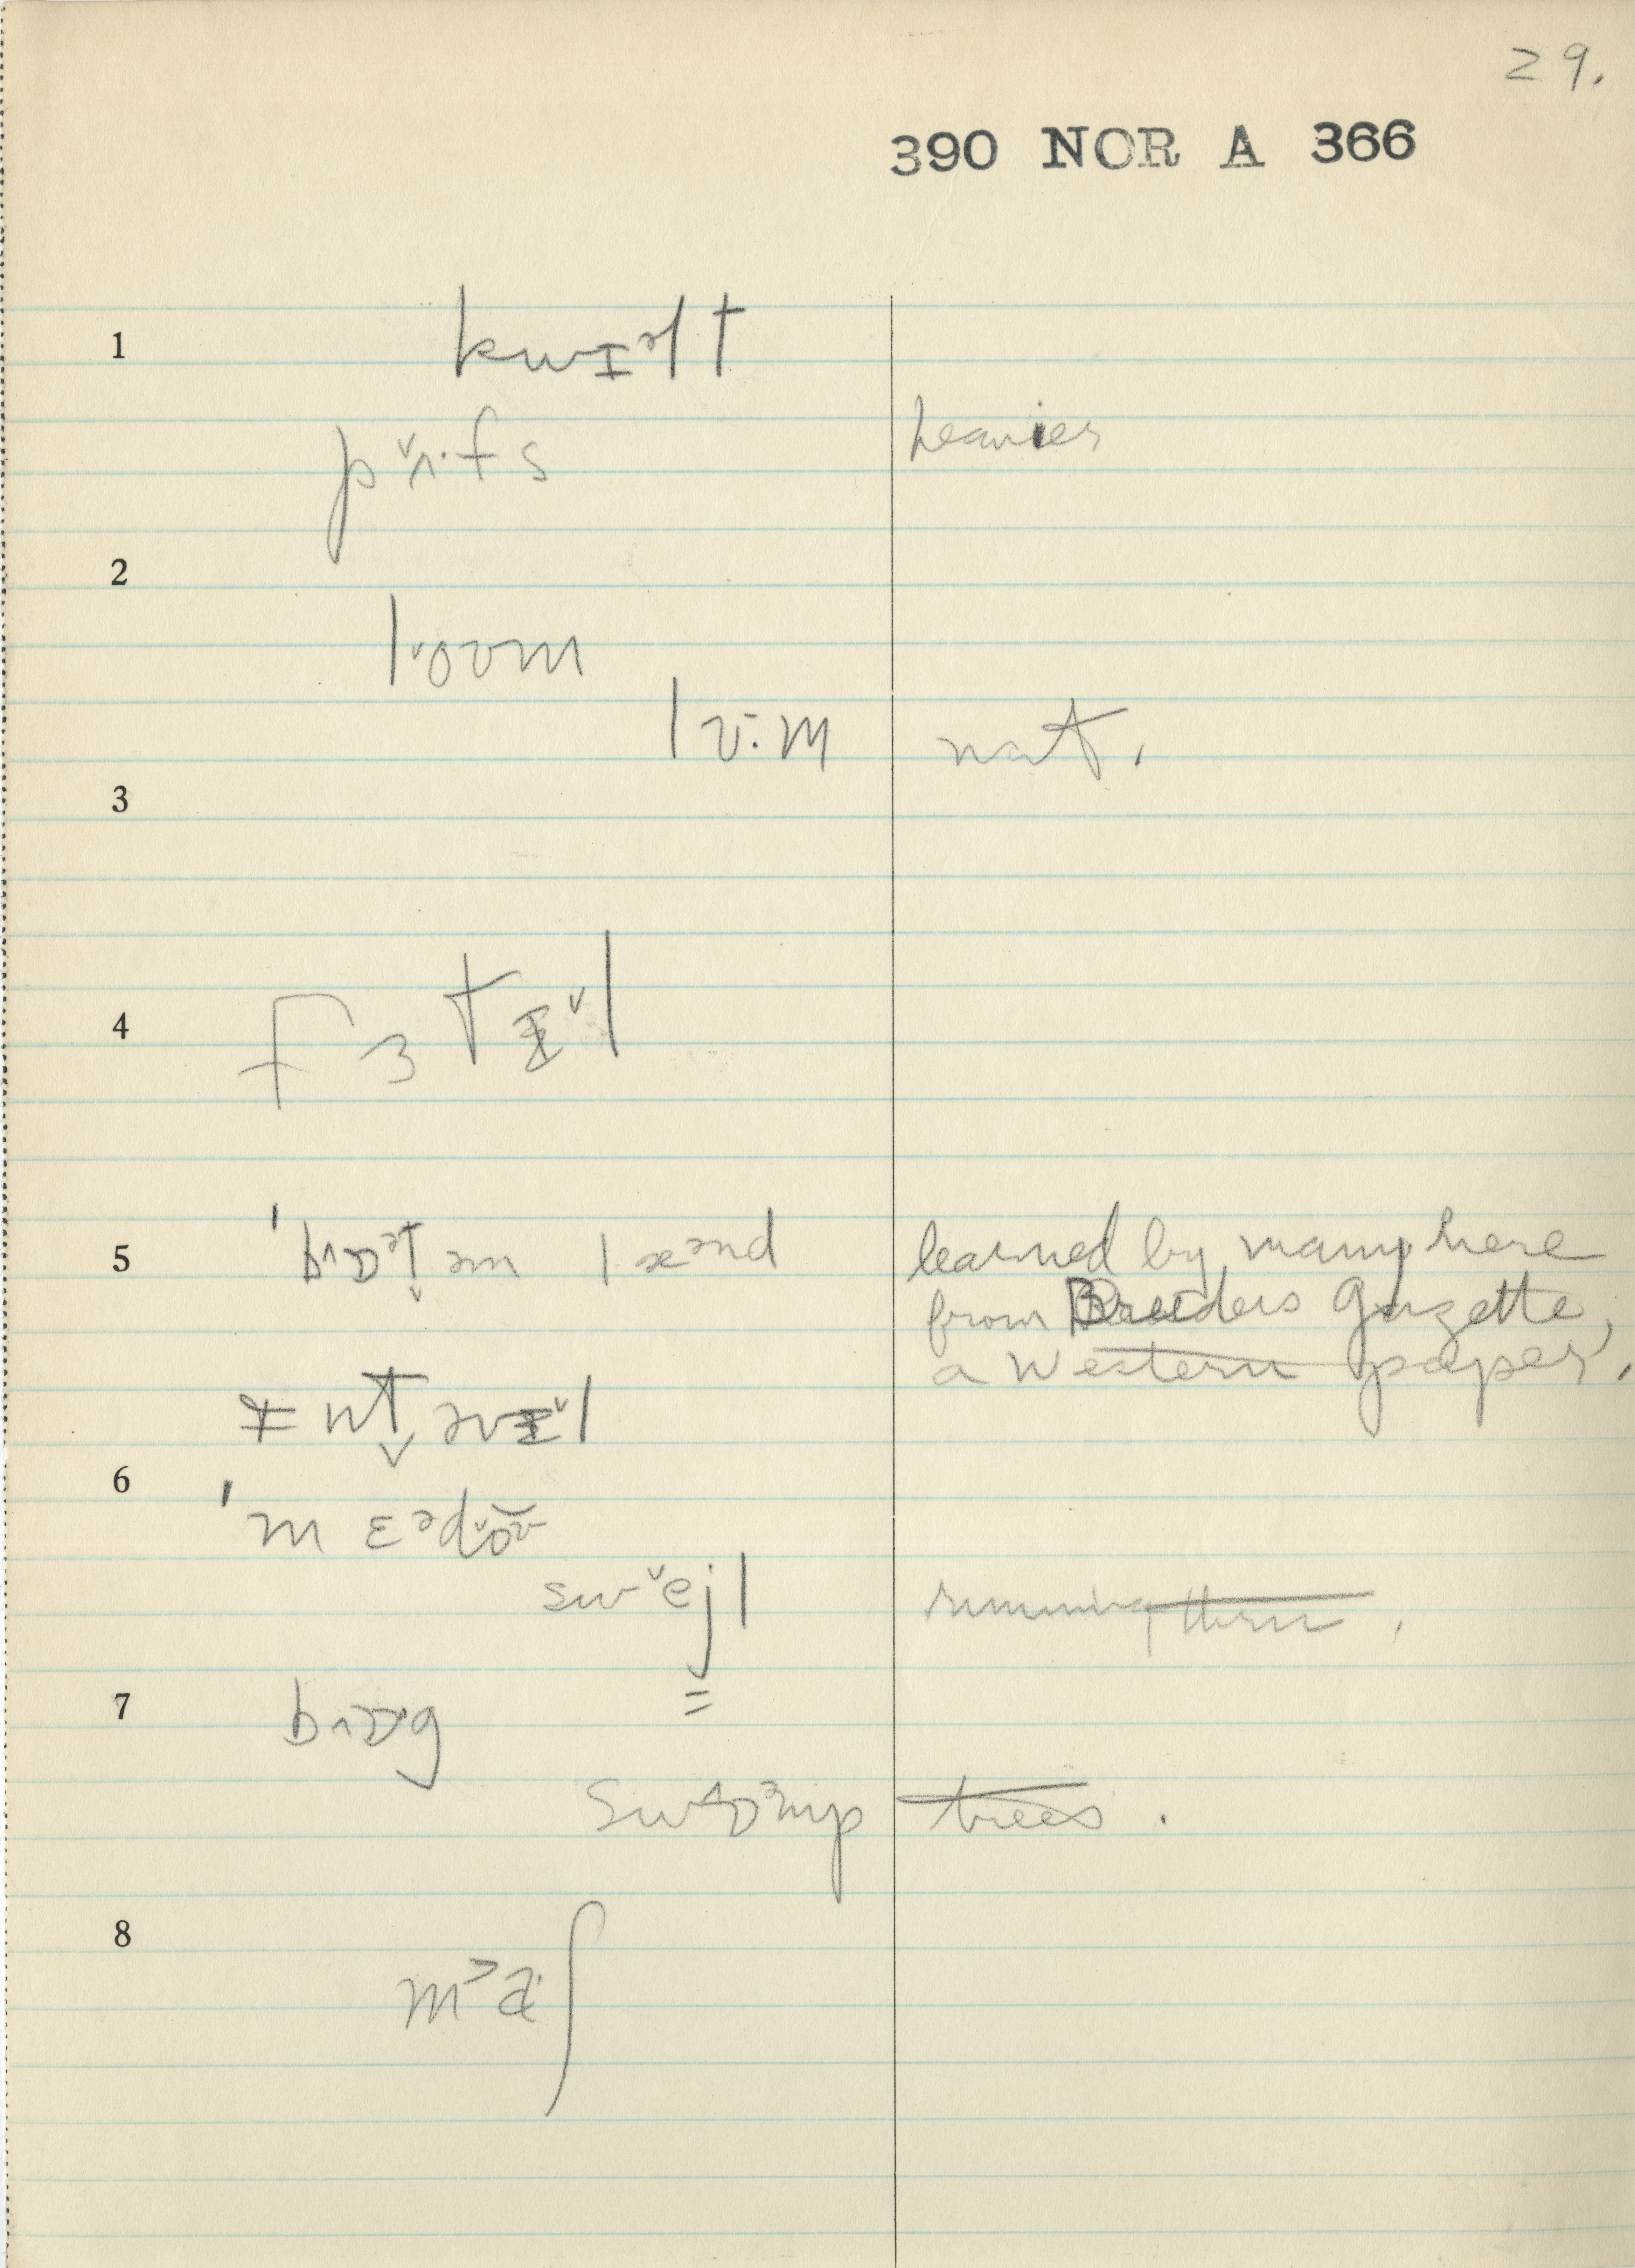 29.
390 NOR A 366
1
kwɪᵊlt
pʌ̌·fs heavier
2
lˇoʊm
lʊ̄·m nat.
3
4
fɜtɪˇl
5 ˈbɒᵊt̬əm læᵊnd learned by many here
from Breeders Gazette,
a Western paper.
ɪnt̬əvɪˇl
6
ˈmɛᵊdˇoʊ
swˇejl running them.
7
bɒ·g
swɒᵊmp trees.
8
ma·ʃ